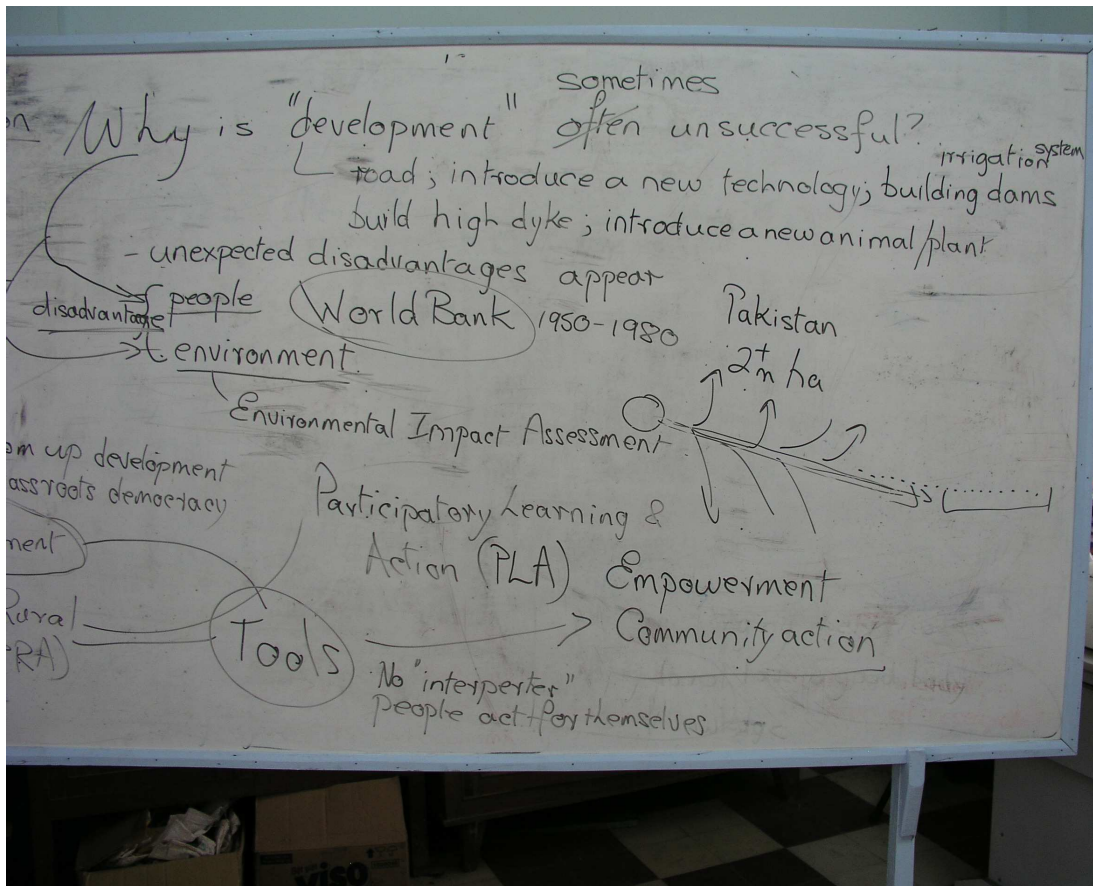 on Why is "development" often unsuccessful?
sometimes
irrigation system
road; introduce a new technology; building dams
build high dyke; introduce a new animal/plant
- unexpected disadvantages appear
people
disadvantage
environment
World Bank 1950-1980
Pakistan
2+ m ha
Environmental Impact Assessment
om up development
assroots democracy
ment
Rural
RA)
Participatory Learning &
Action (PLA)
Tools
Empowerment
Community action
No "interperter"
people act for themselves
viso